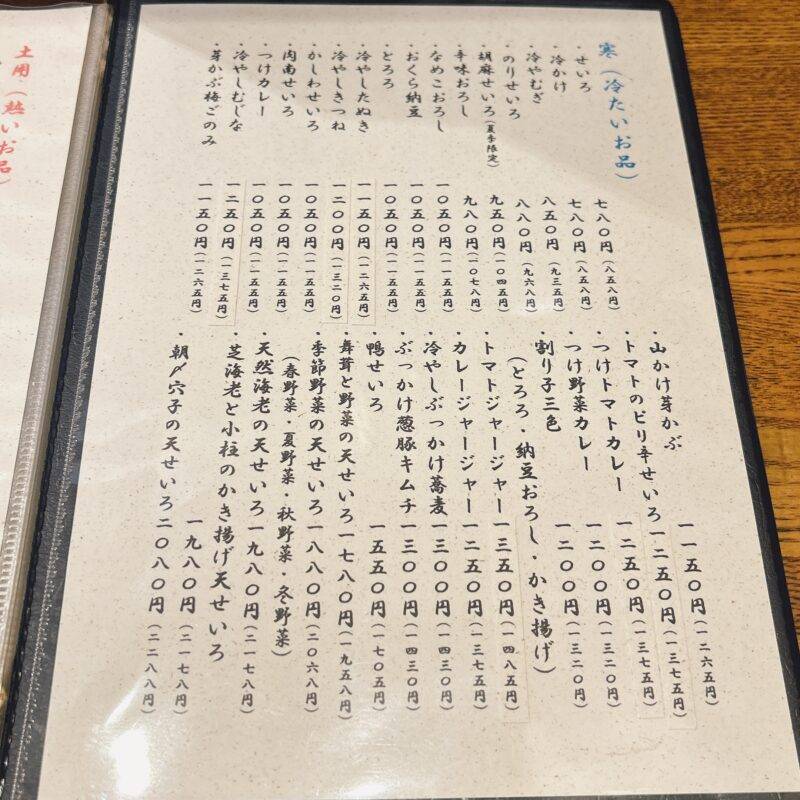 寒(冷たいお品)
・せいろ 七八〇円(八五八円)
・冷かけ 七八〇円(八五八円)
・冷やむぎ 八五〇円(九三五円)
・のりせいろ 八八〇円(九六八円)
・胡麻せいろ(夏季限定) 九五〇円(一〇四五円)
・辛味おろし 九八〇円(一〇七八円)
・なめこおろし 一〇五〇円(一一五五円)
・おくら納豆 一〇五〇円(一一五五円)
・とろろ 一〇五〇円(一一五五円)
・冷やしたぬき 一一五〇円(一二六五円)
・冷やしきつね 一二〇〇円(一三二〇円)
・かしわせいろ 一〇五〇円(一一五五円)
・肉南せいろ 一〇五〇円(一一五五円)
・つけカレー 一〇五〇円(一一五五円)
・冷やしむじな 一二五〇円(一三七五円)
・芽かぶ梅ごのみ 一一五〇円(一二六五円)
・山かけ芽かぶ 一一五〇円(一二六五円)
・トマトのピリ辛せいろ 一二五〇円(一三七五円)
・つけトマトカレー 一二五〇円(一三七五円)
・つけ野菜カレー 一二〇〇円(一三二〇円)
・割り子三色 一二〇〇円(一三二〇円)
(とろろ・納豆おろし・かき揚げ)
・トマトジャージャー 一三五〇円(一四八五円)
・カレージャージャー 一二五〇円(一三七五円)
・冷やしぶっかけ蕎麦 一三〇〇円(一四三〇円)
・ぶっかけ葱豚キムチ 一三〇〇円(一四三〇円)
・鴨せいろ 一五五〇円(一七〇五円)
・舞茸と野菜の天せいろ 一七八〇円(一九五八円)
・季節野菜の天せいろ 一八八〇円(二〇六八円)
(春野菜・夏野菜・秋野菜・冬野菜)
・天然海老の天せいろ 一九八〇円(二一七八円)
・芝海老と小柱のかき揚げ天せいろ 一九八〇円(二一七八円)
・朝〆穴子の天せいろ 二〇八〇円(二二八八円)
土用(熱いお品)